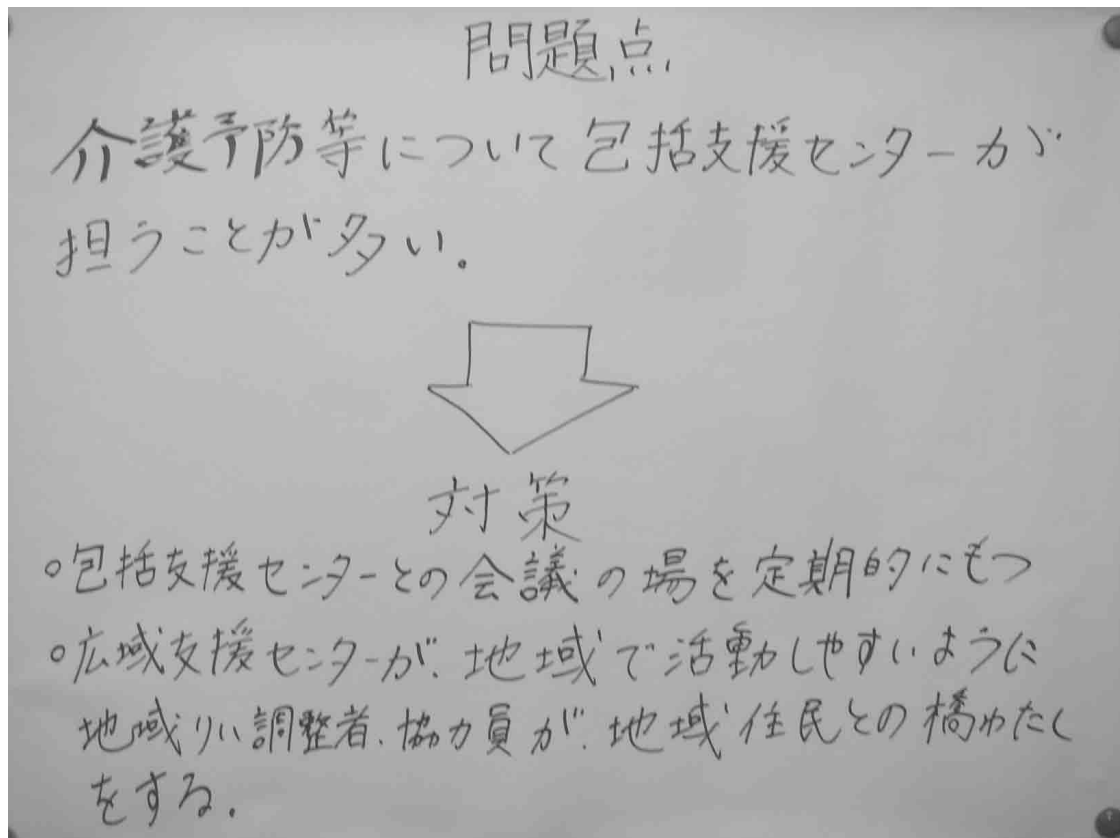 問題点
介護予防等について包括支援センターが
担うことが多い。
対策
○包括支援センターとの会議の場を定期的にもつ
○広域支援センターが、地域で活動しやすいように
地域リハ調整者、協力員が、地域住民との橋わたし
をする。